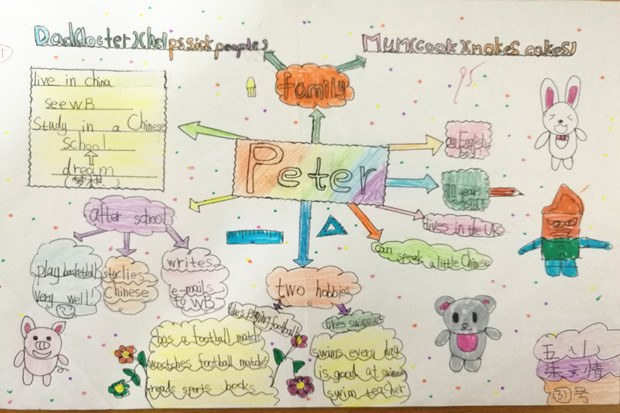 Dad(doster)(helps sick people)
Mum(cook)(makes cakes)
95
family
live in china
see WB
Study in a Chinese
school
dream
Peter
an English
boy
11 years
old
lives in the UK
can speak a little Chinese
after school
play basketball
very well!
studies
Chinese
writes
e-mails
to WB
two hobbies
likes playing football
likes swimming
has a football match
watches football matches
reads sports books
swims every day
is good at swimming
swim teacher
五(1)
33号